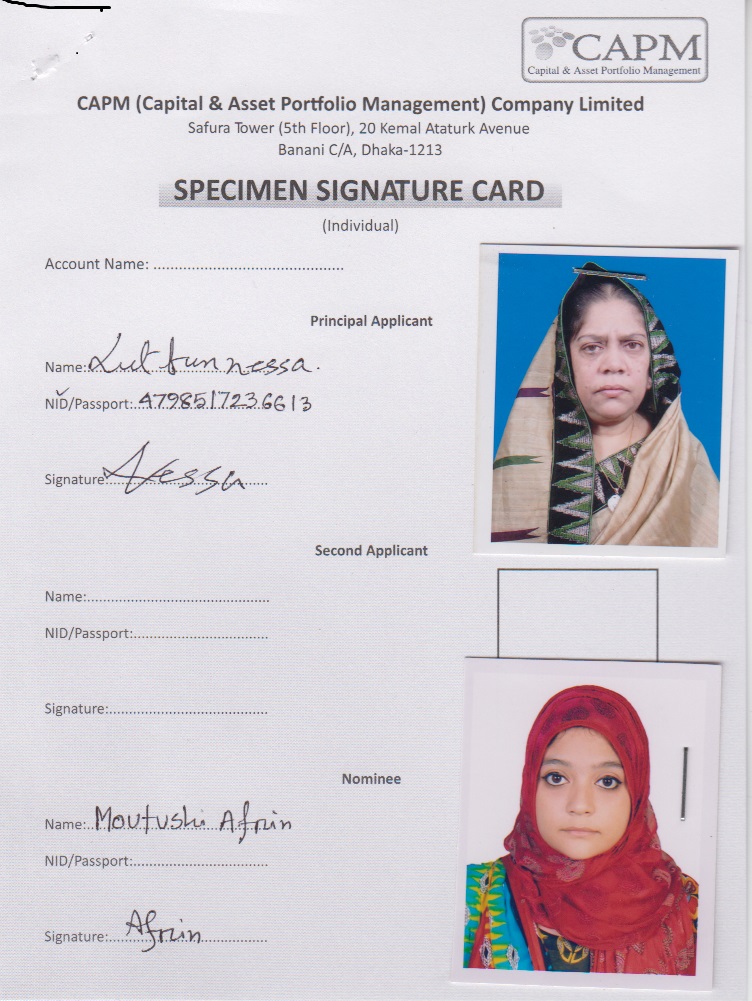 CAPM
Capital & Asset Portfolio Management
CAPM (Capital & Asset Portfolio Management) Company Limited
Safura Tower (5th Floor), 20 Kemal Ataturk Avenue
Banani C/A, Dhaka-1213
SPECIMEN SIGNATURE CARD
(Individual)
Account Name: ............................................
Principal Applicant
Name: Lutfunnessa.
NID/Passport: 4798517236613
Signature: Nessa
Second Applicant
Name:............................................
NID/Passport:................................
Signature:......................................
Nominee
Name: Moutushi Afrin
NID/Passport:................................
Signature: Afrin